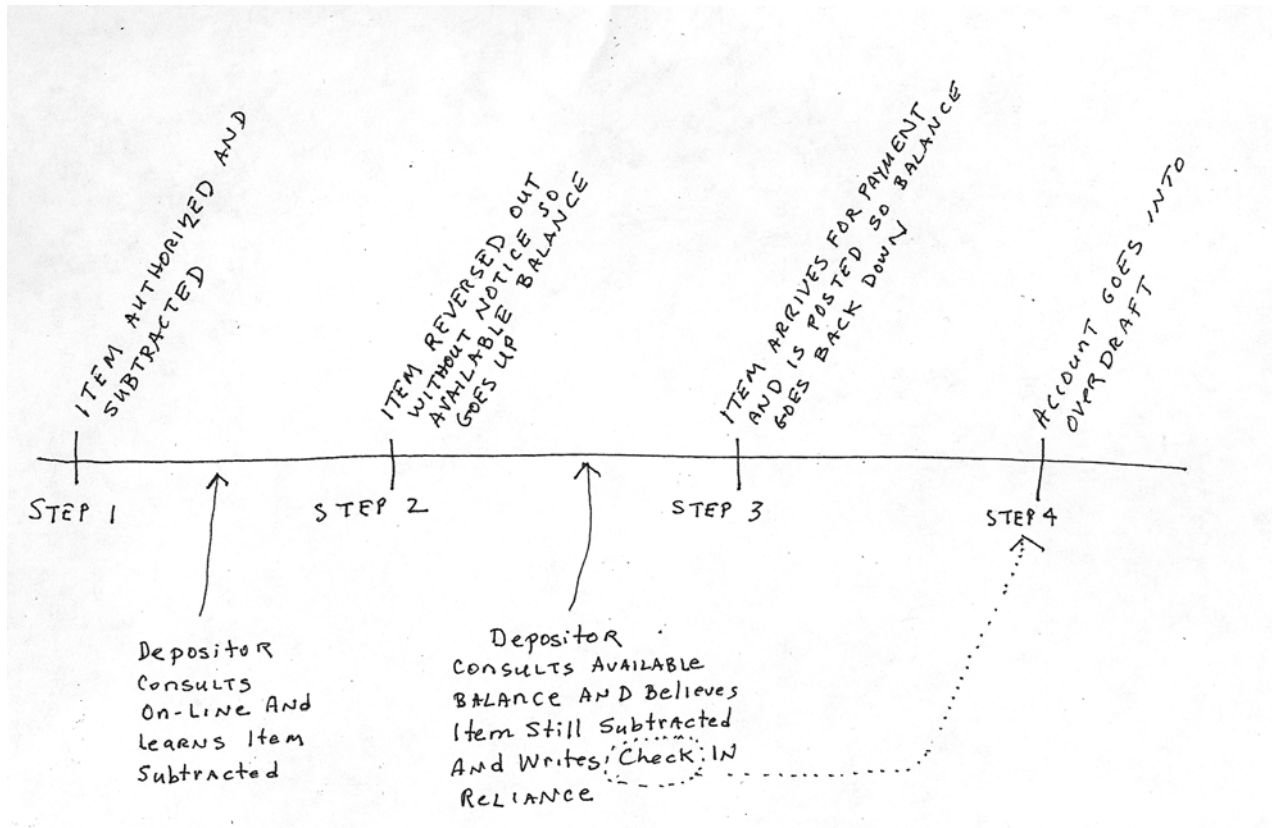 ITEM AUTHORIZED AND
SUBTRACTED
ITEM REVERSED OUT
WITHOUT NOTICE SO
AVAILABLE BALANCE
GOES UP
ITEM ARRIVES FOR PAYMENT
AND IS POSTED SO BALANCE
GOES BACK DOWN
ACCOUNT GOES INTO
OVERDRAFT
STEP 1
STEP 2
STEP 3
STEP 4
Depositor
Consults
On-Line And
Learns Item
Subtracted
Depositor
Consults Available
Balance And Believes
Item Still Subtracted
And Writes Check In
Reliance